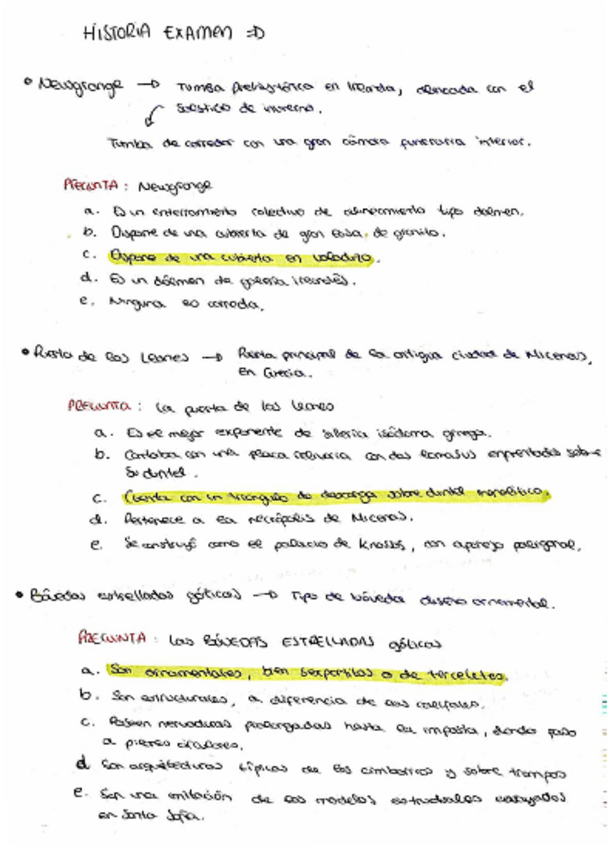 HISTORIA EXAMEN =D
• Newgrange → Tumba prehistórica en Irlanda, alineada con el
solsticio de invierno.
Tumba de corredor con una gran cámara funeraria interior.
PREGUNTA : Newgrange
a. Es un enterramiento colectivo de alineamiento tipo dolmen.
b. Dispone de una cubierta de gran losa, de granito.
c. Dispone de una cubierta en voladizo.
d. Es un dólmen de galería irlandés.
e. Ninguna es correcta.
• Puerta de los Leones → Puerta principal de la antigua ciudad de Micenas,
en Grecia.
PREGUNTA : La puerta de los leones
a. Es el mejor exponente de sillería isódoma griega.
b. Contaba con una placa relivaria con dos lamasus enfrentados sobre
su dintel.
c. Cuenta con un triángulo de descarga sobre dintel monolítico.
d. Pertenece a la necrópolis de Micenas.
e. Se construyó como el palacio de Knossos, con aparejo poligonal.
• Bóvedas estrelladas góticas → Tipo de bóveda diseño ornamental.
PREGUNTA : Las BÓVEDAS ESTRELLADAS góticas
a. Son ornamentales, bien sexpartitas o de terceletes.
b. Son estructurales, a diferencia de las
c. Poseen nervaduras prolongadas hasta la imposta, dando paso
a pilares circulares.
d Son arquitecturas típicas de los cimborrios y sobre trompas
e. Son una imitación de los modelos estructurales ensayados
en Santa Sofía.